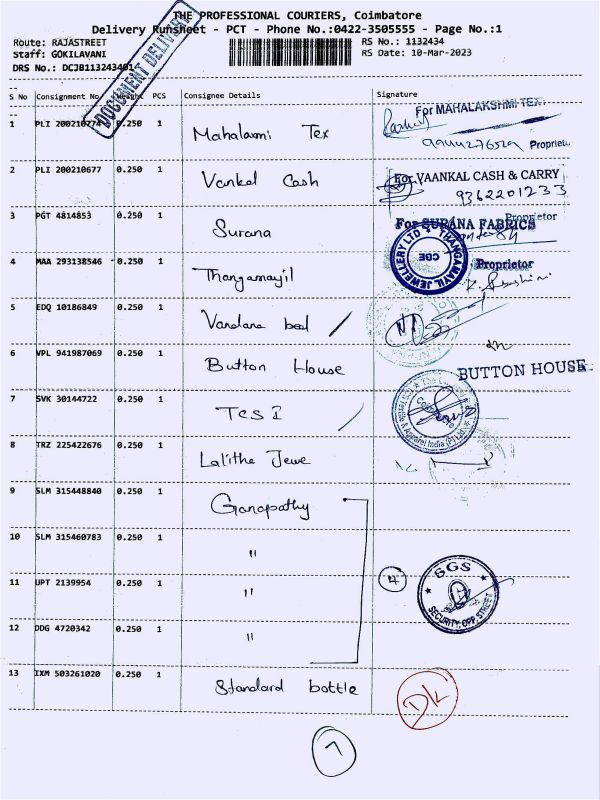 THE PROFESSIONAL COURIERS, Coimbatore
Delivery Runsheet - PCT - Phone No.:0422-3505555 - Page No.:1
Route: RAJASTREET RS No.: 1132434
Staff: GOKILAVANI RS Date: 10-Mar-2023
DRS No.: DCJB1132434014
DOCUMENT DELIVERY
S No Consignment No. Weight PCS Consignee Details Signature
1 PLI 200210774 0.250 1 Mahalaxmi Tex
For MAHALAKSHMI TEX
Proprietor
2 PLI 200210677 0.250 1 Vankal Cash
For VAANKAL CASH & CARRY
9362201233
Proprietor
3 PGT 4814853 0.250 1 Surana
For SURANA FABRICS
Proprietor
4 MAA 293138546 0.250 1 Thangamayil
THANGAMAYIL JEWELLERY LTD
CBE
5 EDQ 10186849 0.250 1 Vandana bed
6 VPL 941987069 0.250 1 Button House
BUTTON HOUSE
7 SVK 30144722 0.250 1 TCS I
8 TRZ 225422676 0.250 1 Lalitha Jewe
9 SLM 315448840 0.250 1 Ganapathy
10 SLM 315460783 0.250 1 "
11 UPT 2139954 0.250 1 "
4
SGS
SECURITY, OPP. STREET
12 DDG 4720342 0.250 1 "
13 IXM 503261020 0.250 1 Standard bottle
DK
7